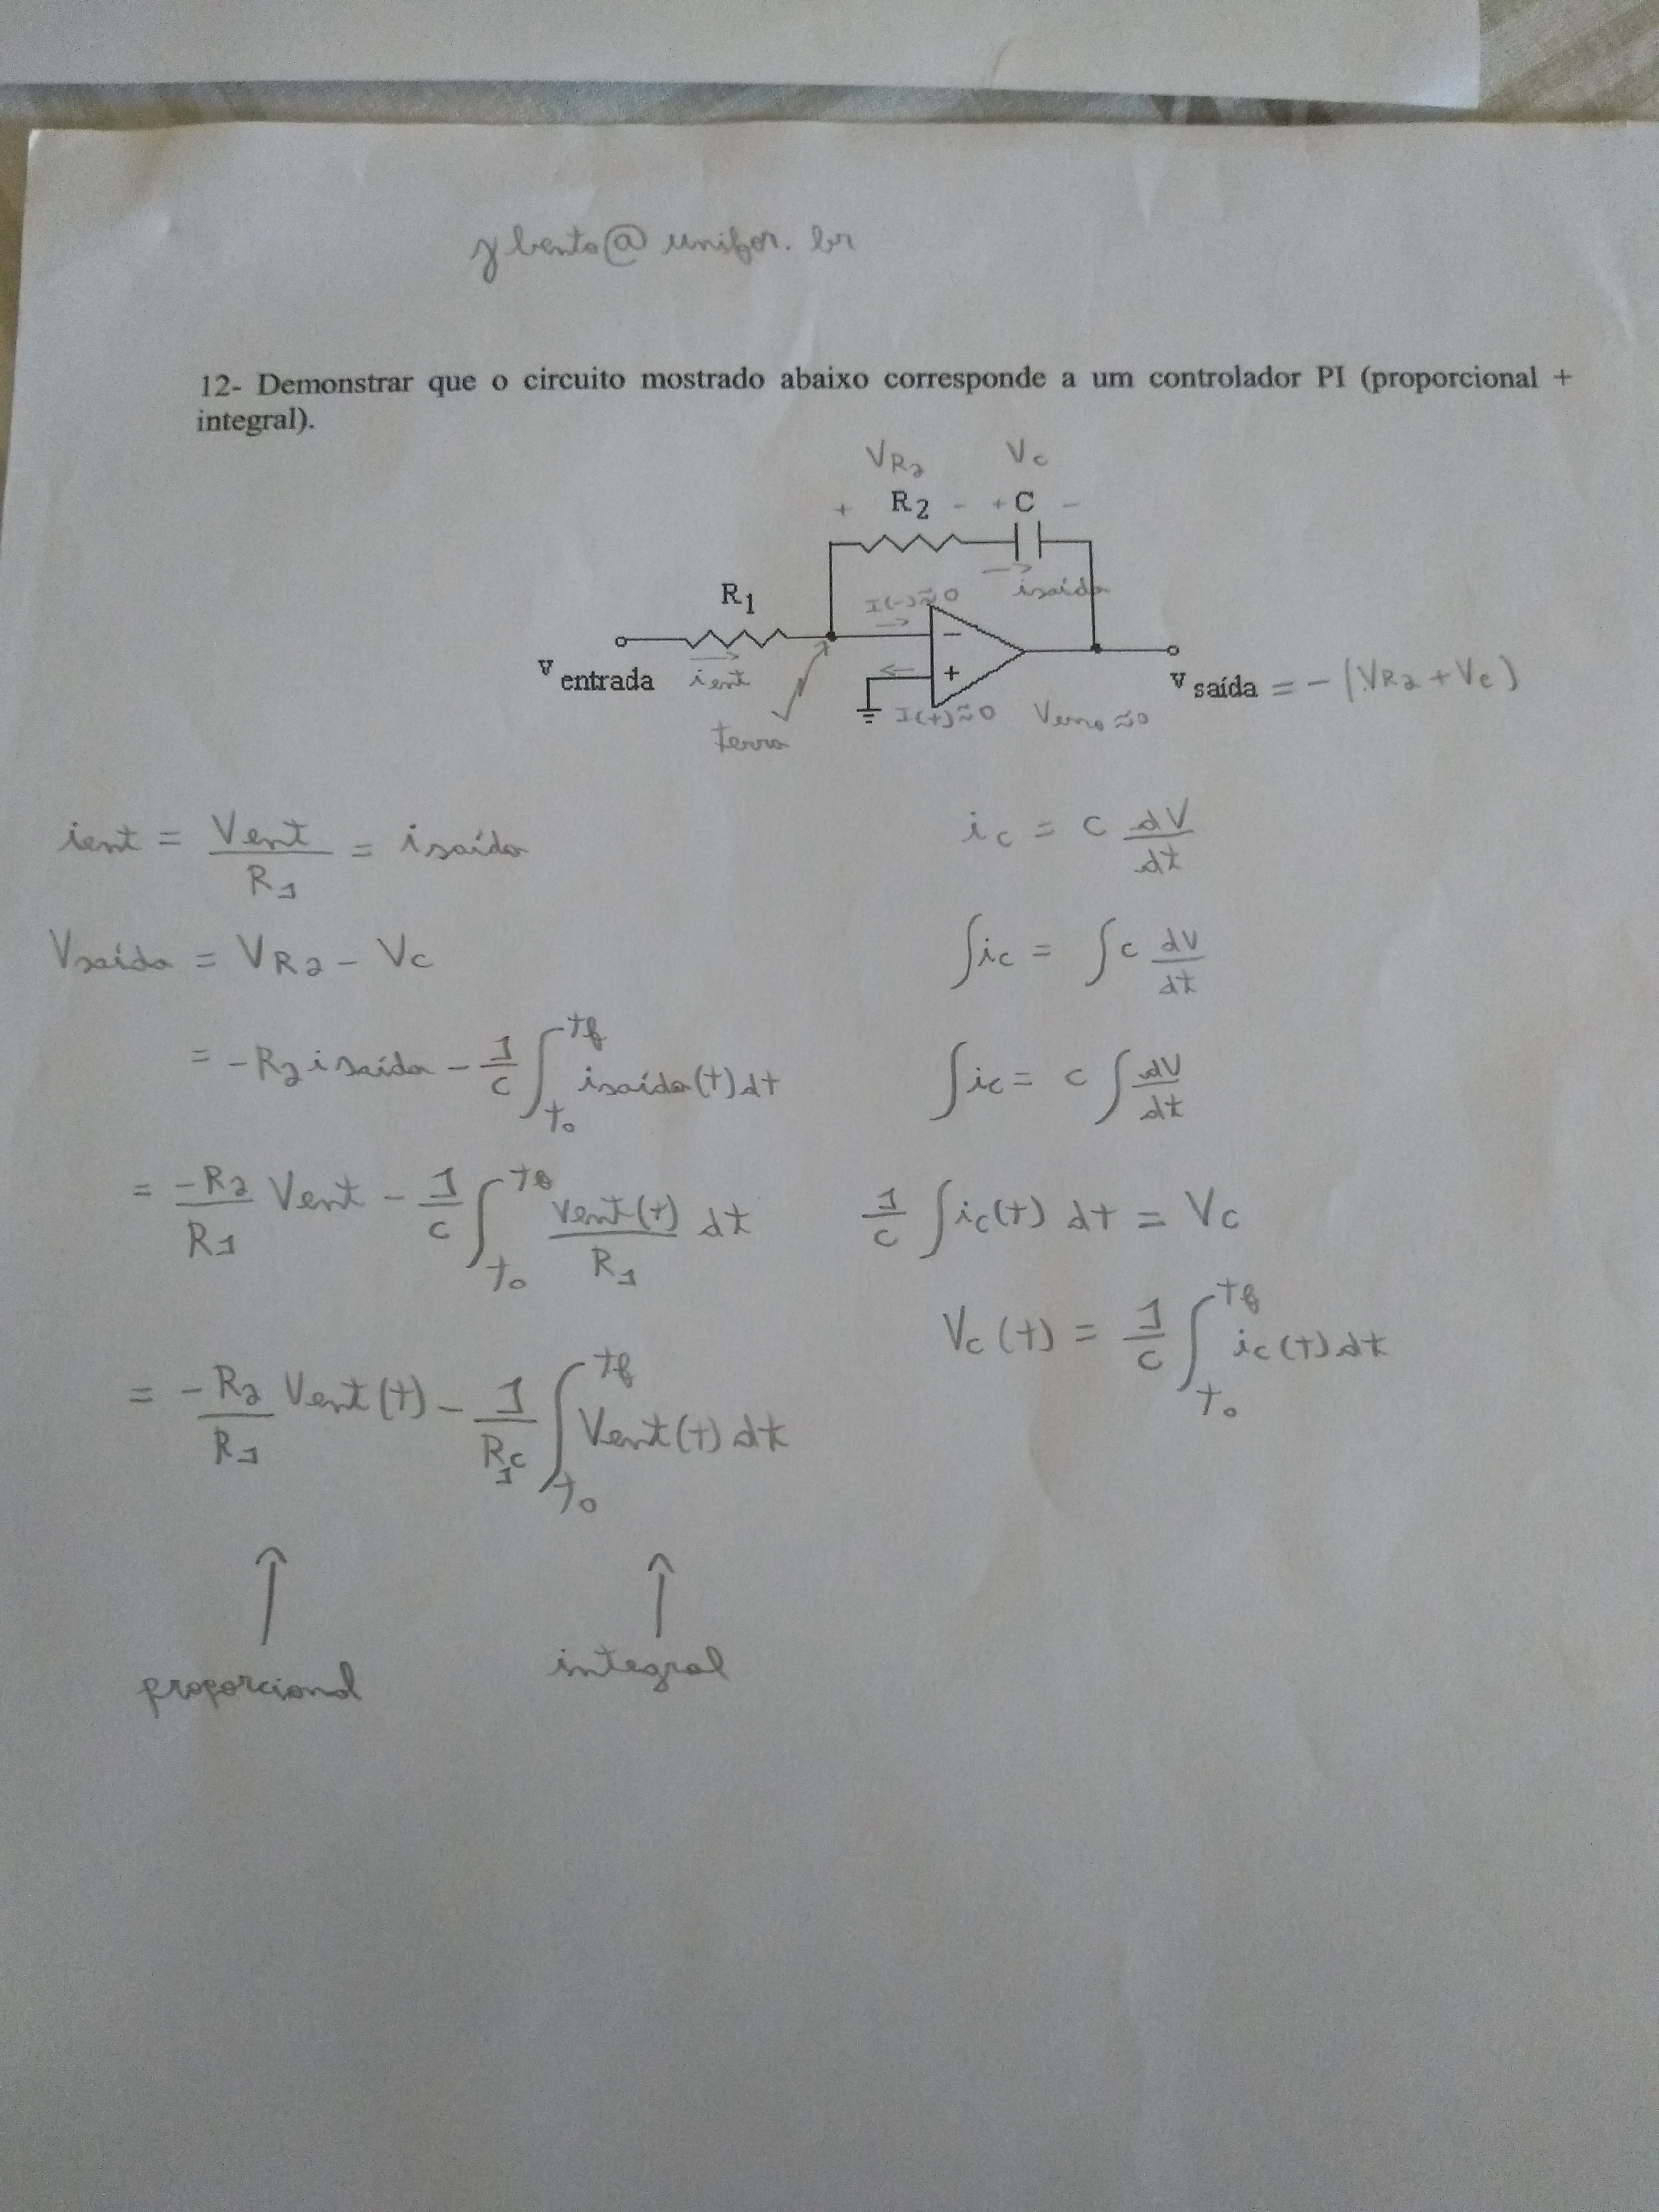 ybento@unifor.br
12- Demonstrar que o circuito mostrado abaixo corresponde a um controlador PI (proporcional +
integral).
VR2 Vc
+ R2 - + C -
isaída
R1
I(-)≈0
-
+
ventrada
ient
vsaída = -(VR2 + Vc)
I(+)≈0
Verro ≈0
terra
ient = Vent/R1 = isaída
Vsaída = VR2 - Vc
= -R2 isaída - 1/c ∫t0^tf isaída(t)dt
= -R2/R1 Vent - 1/c ∫t0^tf vent(t)/R1 dt
= -R2/R1 Vent(t) - 1/R1c ∫t0^tf Vent(t)dt
proporcional
integral
ic = c dV/dt
∫ic = ∫c dV/dt
∫ic = c ∫dV/dt
1/c ∫ic(t) dt = Vc
Vc(t) = 1/c ∫t0^tf ic(t)dt